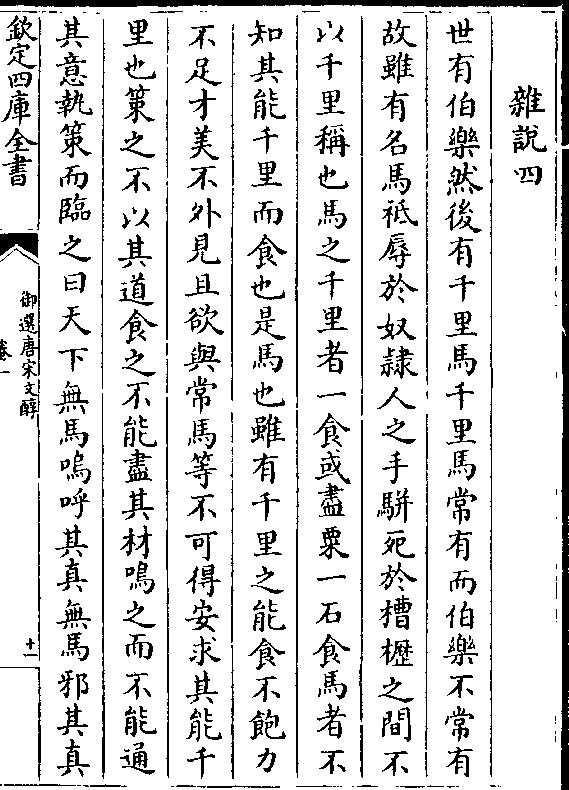 雜說四
世有伯樂然後有千里馬千里馬常有而伯樂不常有
故雖有名馬祗辱於奴隸人之手駢死於槽櫪之間不
以千里稱也馬之千里者一食或盡粟一石食馬者不
知其能千里而食也是馬也雖有千里之能食不飽力
不足才美不外見且欲與常馬等不可得安求其能千
里也策之不以其道食之不能盡其材鳴之而不能通
其意執策而臨之曰天下無馬嗚呼其真無馬邪其真
欽定四庫全書
御選唐宋文醇
卷一
十一